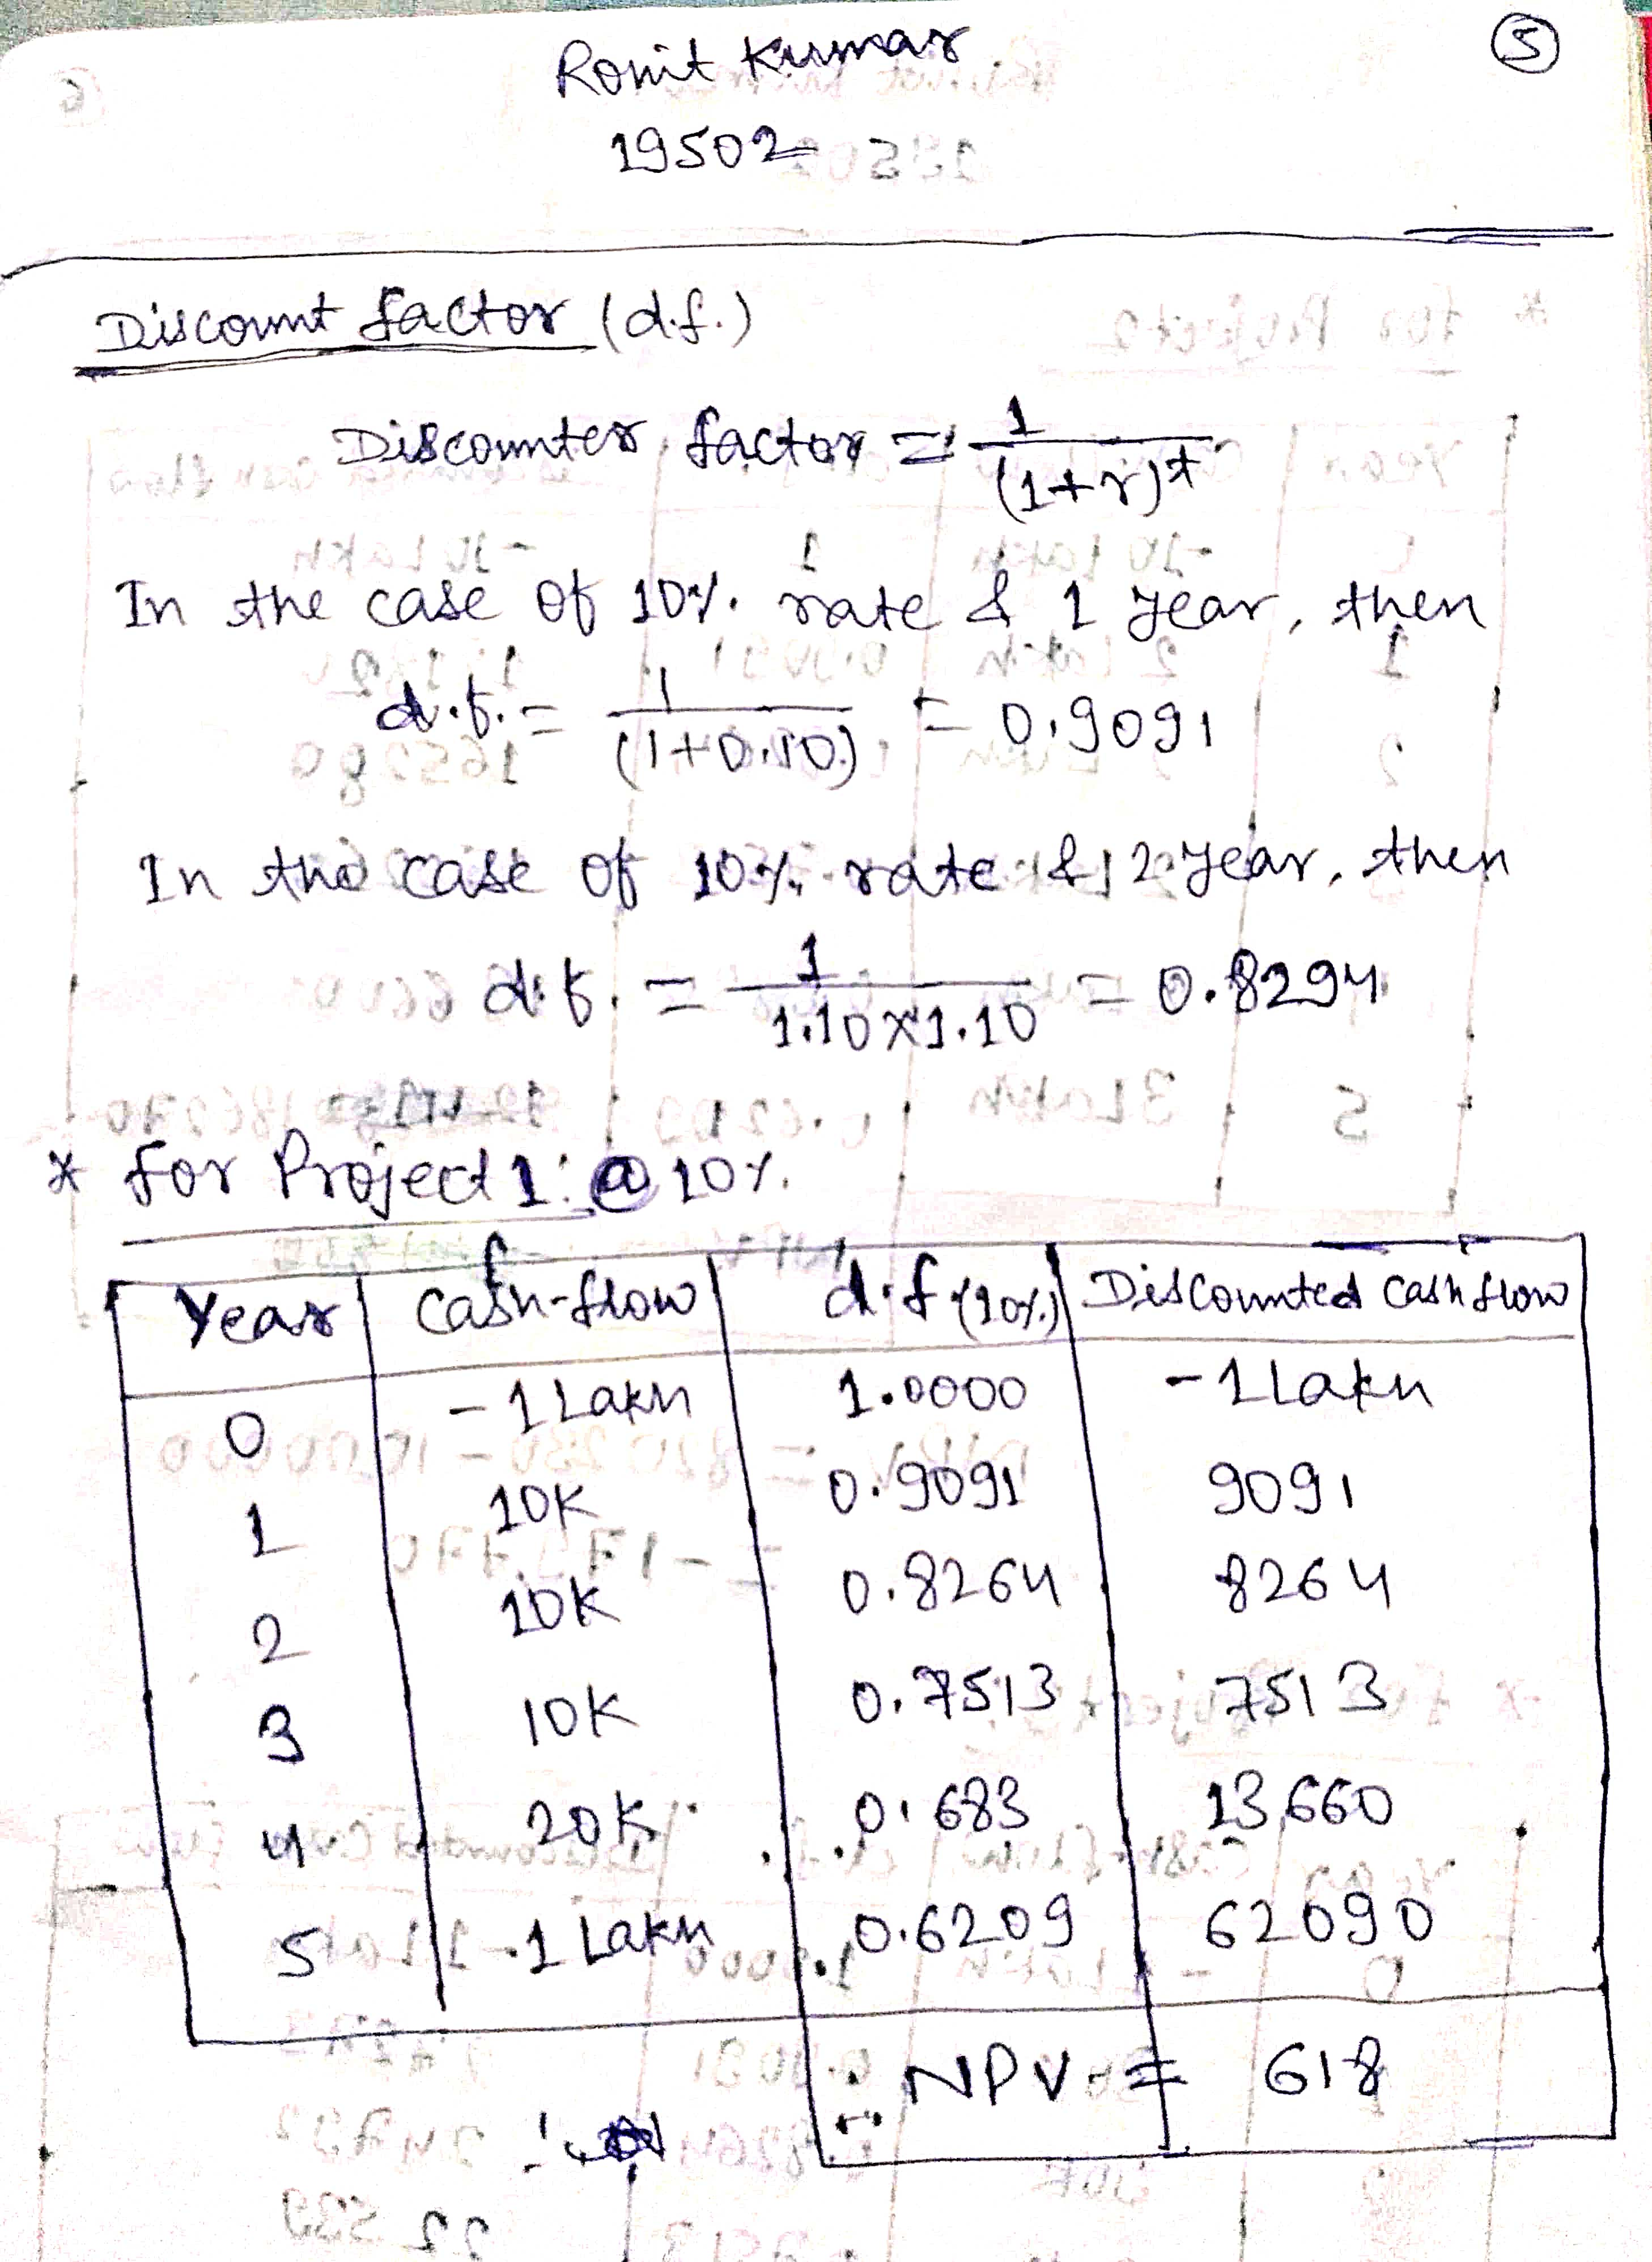 Ronit Kumar
5
19502
Discount factor (d.f.)
Discounter factor = 1/(1+r)^t
In the case of 10% rate & 1 year, then
d.f. = 1/(1+0.10) = 0.9091
In the case of 10% rate & 2 year, then
d.f. = 1/1.10×1.10 = 0.8294
* for Project 1: @ 10%.
Year | Cash-flow | d.f (10%) | Discounted Cash flow
0 | -1 Lakh | 1.0000 | -1 Lakh
1 | 10K | 0.9091 | 9091
2 | 10K | 0.8264 | 8264
3 | 10K | 0.7513 | 7513
4 | 20K | 0.683 | 13,660
5 | 1 Lakh | 0.6209 | 62090
NPV = 618